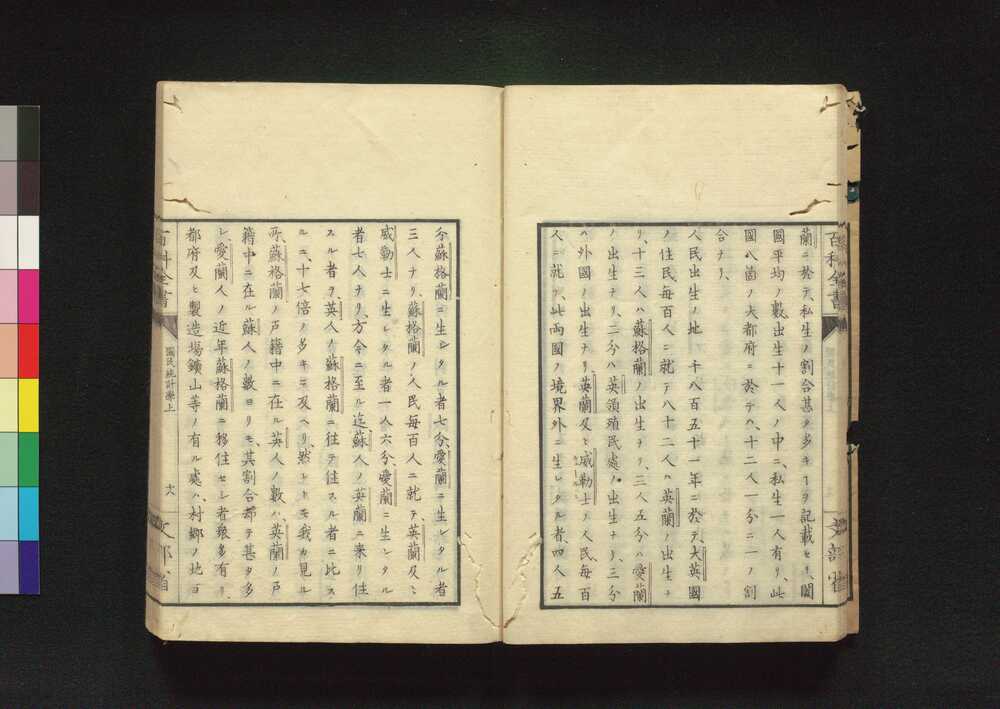 百科全書
蘭ニ於テ、私生ノ割合甚タ多キヿヲ記載セリ、闔
國平均ノ數出生十一人ノ中ニ、私生一人有リ、此
國八箇ノ大都府ニ於テハ、十二人一分ニ一ノ割
合ナリ、
人民出生ノ地　千八百五十一年ニ於テ、大英國
ノ住民毎百人ニ就テ八十二人ハ英蘭ノ出生ナ
リ、十三人ハ蘇格蘭ノ出生ナリ、三人五分ハ愛蘭
ノ出生ナリ、二分ハ英領殖民處ノ出生ナリ、三分
ハ外國ノ出生ナリ、英蘭及ヒ威勒士ノ人民、毎百
人ニ就テ、此兩國ノ境界外ニ生レタル者四人五
分、蘇格蘭ニ生レタル者七分、愛蘭ニ生レタル者
三人ナリ、蘇格蘭ノ人民毎百人ニ就テ、英蘭及ヒ
威勒士ニ生レタル者一人六分、愛蘭ニ生レタル
者七人ナリ、方今ニ至ル迄蘇人ノ英蘭ニ來リ住
スル者ヲ、英人ノ蘇格蘭ニ往テ住スル者ニ比ス
ルニ、十七倍ノ多キニ及ヘリ、然レトモ我カ見ル
所、蘇格蘭ノ戸籍中ニ在ル英人ノ數ハ、英蘭ノ戸
籍中ニ在ル蘇人ノ數ヨリモ、其割合却テ甚タ多
シ、愛蘭人ノ近年蘇格蘭ニ移住セシ者最多有リ、
都府及ヒ製造場鑛山等ノ有ル處ハ、村鄉ノ地ヨ
百科全書
國民統計學上
六
文部省